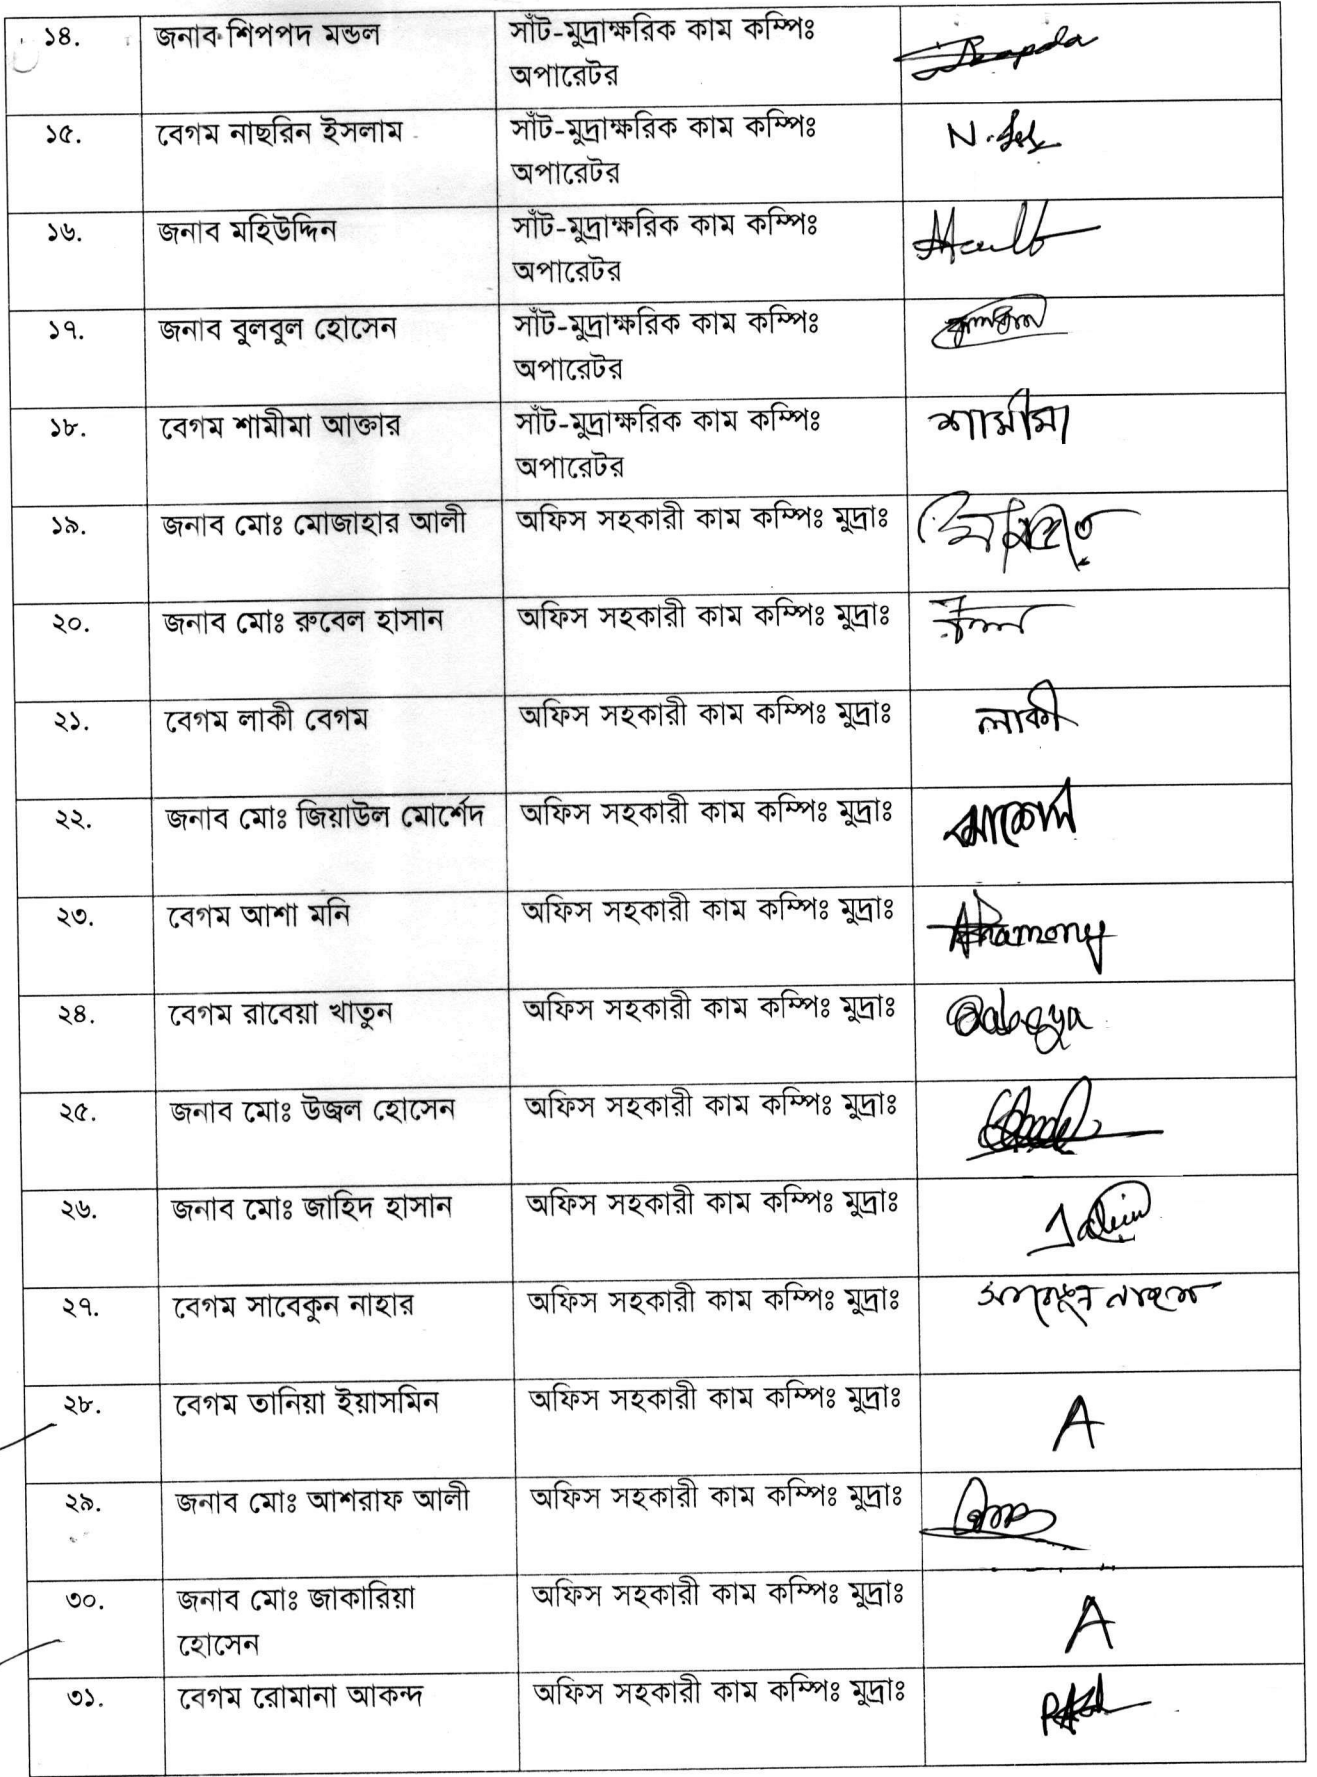 ১৪. জনাব শিপপদ মন্ডল সাঁট-মুদ্রাক্ষরিক কাম কম্পিঃ
অপারেটর
১৫. বেগম নাছরিন ইসলাম সাঁট-মুদ্রাক্ষরিক কাম কম্পিঃ N.
অপারেটর
১৬. জনাব মহিউদ্দিন সাঁট-মুদ্রাক্ষরিক কাম কম্পিঃ
অপারেটর
১৭. জনাব বুলবুল হোসেন সাঁট-মুদ্রাক্ষরিক কাম কম্পিঃ
অপারেটর
১৮. বেগম শামীমা আক্তার সাঁট-মুদ্রাক্ষরিক কাম কম্পিঃ শামীমা
অপারেটর
১৯. জনাব মোঃ মোজাহার আলী অফিস সহকারী কাম কম্পিঃ মুদ্রাঃ
২০. জনাব মোঃ রুবেল হাসান অফিস সহকারী কাম কম্পিঃ মুদ্রাঃ
২১. বেগম লাকী বেগম অফিস সহকারী কাম কম্পিঃ মুদ্রাঃ লাকী
২২. জনাব মোঃ জিয়াউল মোর্শেদ অফিস সহকারী কাম কম্পিঃ মুদ্রাঃ
২৩. বেগম আশা মনি অফিস সহকারী কাম কম্পিঃ মুদ্রাঃ
২৪. বেগম রাবেয়া খাতুন অফিস সহকারী কাম কম্পিঃ মুদ্রাঃ Rabeya
২৫. জনাব মোঃ উজ্বল হোসেন অফিস সহকারী কাম কম্পিঃ মুদ্রাঃ
২৬. জনাব মোঃ জাহিদ হাসান অফিস সহকারী কাম কম্পিঃ মুদ্রাঃ
২৭. বেগম সাবেকুন নাহার অফিস সহকারী কাম কম্পিঃ মুদ্রাঃ সাবেকুন নাহার
২৮. বেগম তানিয়া ইয়াসমিন অফিস সহকারী কাম কম্পিঃ মুদ্রাঃ A
২৯. জনাব মোঃ আশরাফ আলী অফিস সহকারী কাম কম্পিঃ মুদ্রাঃ
৩০. জনাব মোঃ জাকারিয়া অফিস সহকারী কাম কম্পিঃ মুদ্রাঃ A
হোসেন
৩১. বেগম রোমানা আকন্দ অফিস সহকারী কাম কম্পিঃ মুদ্রাঃ